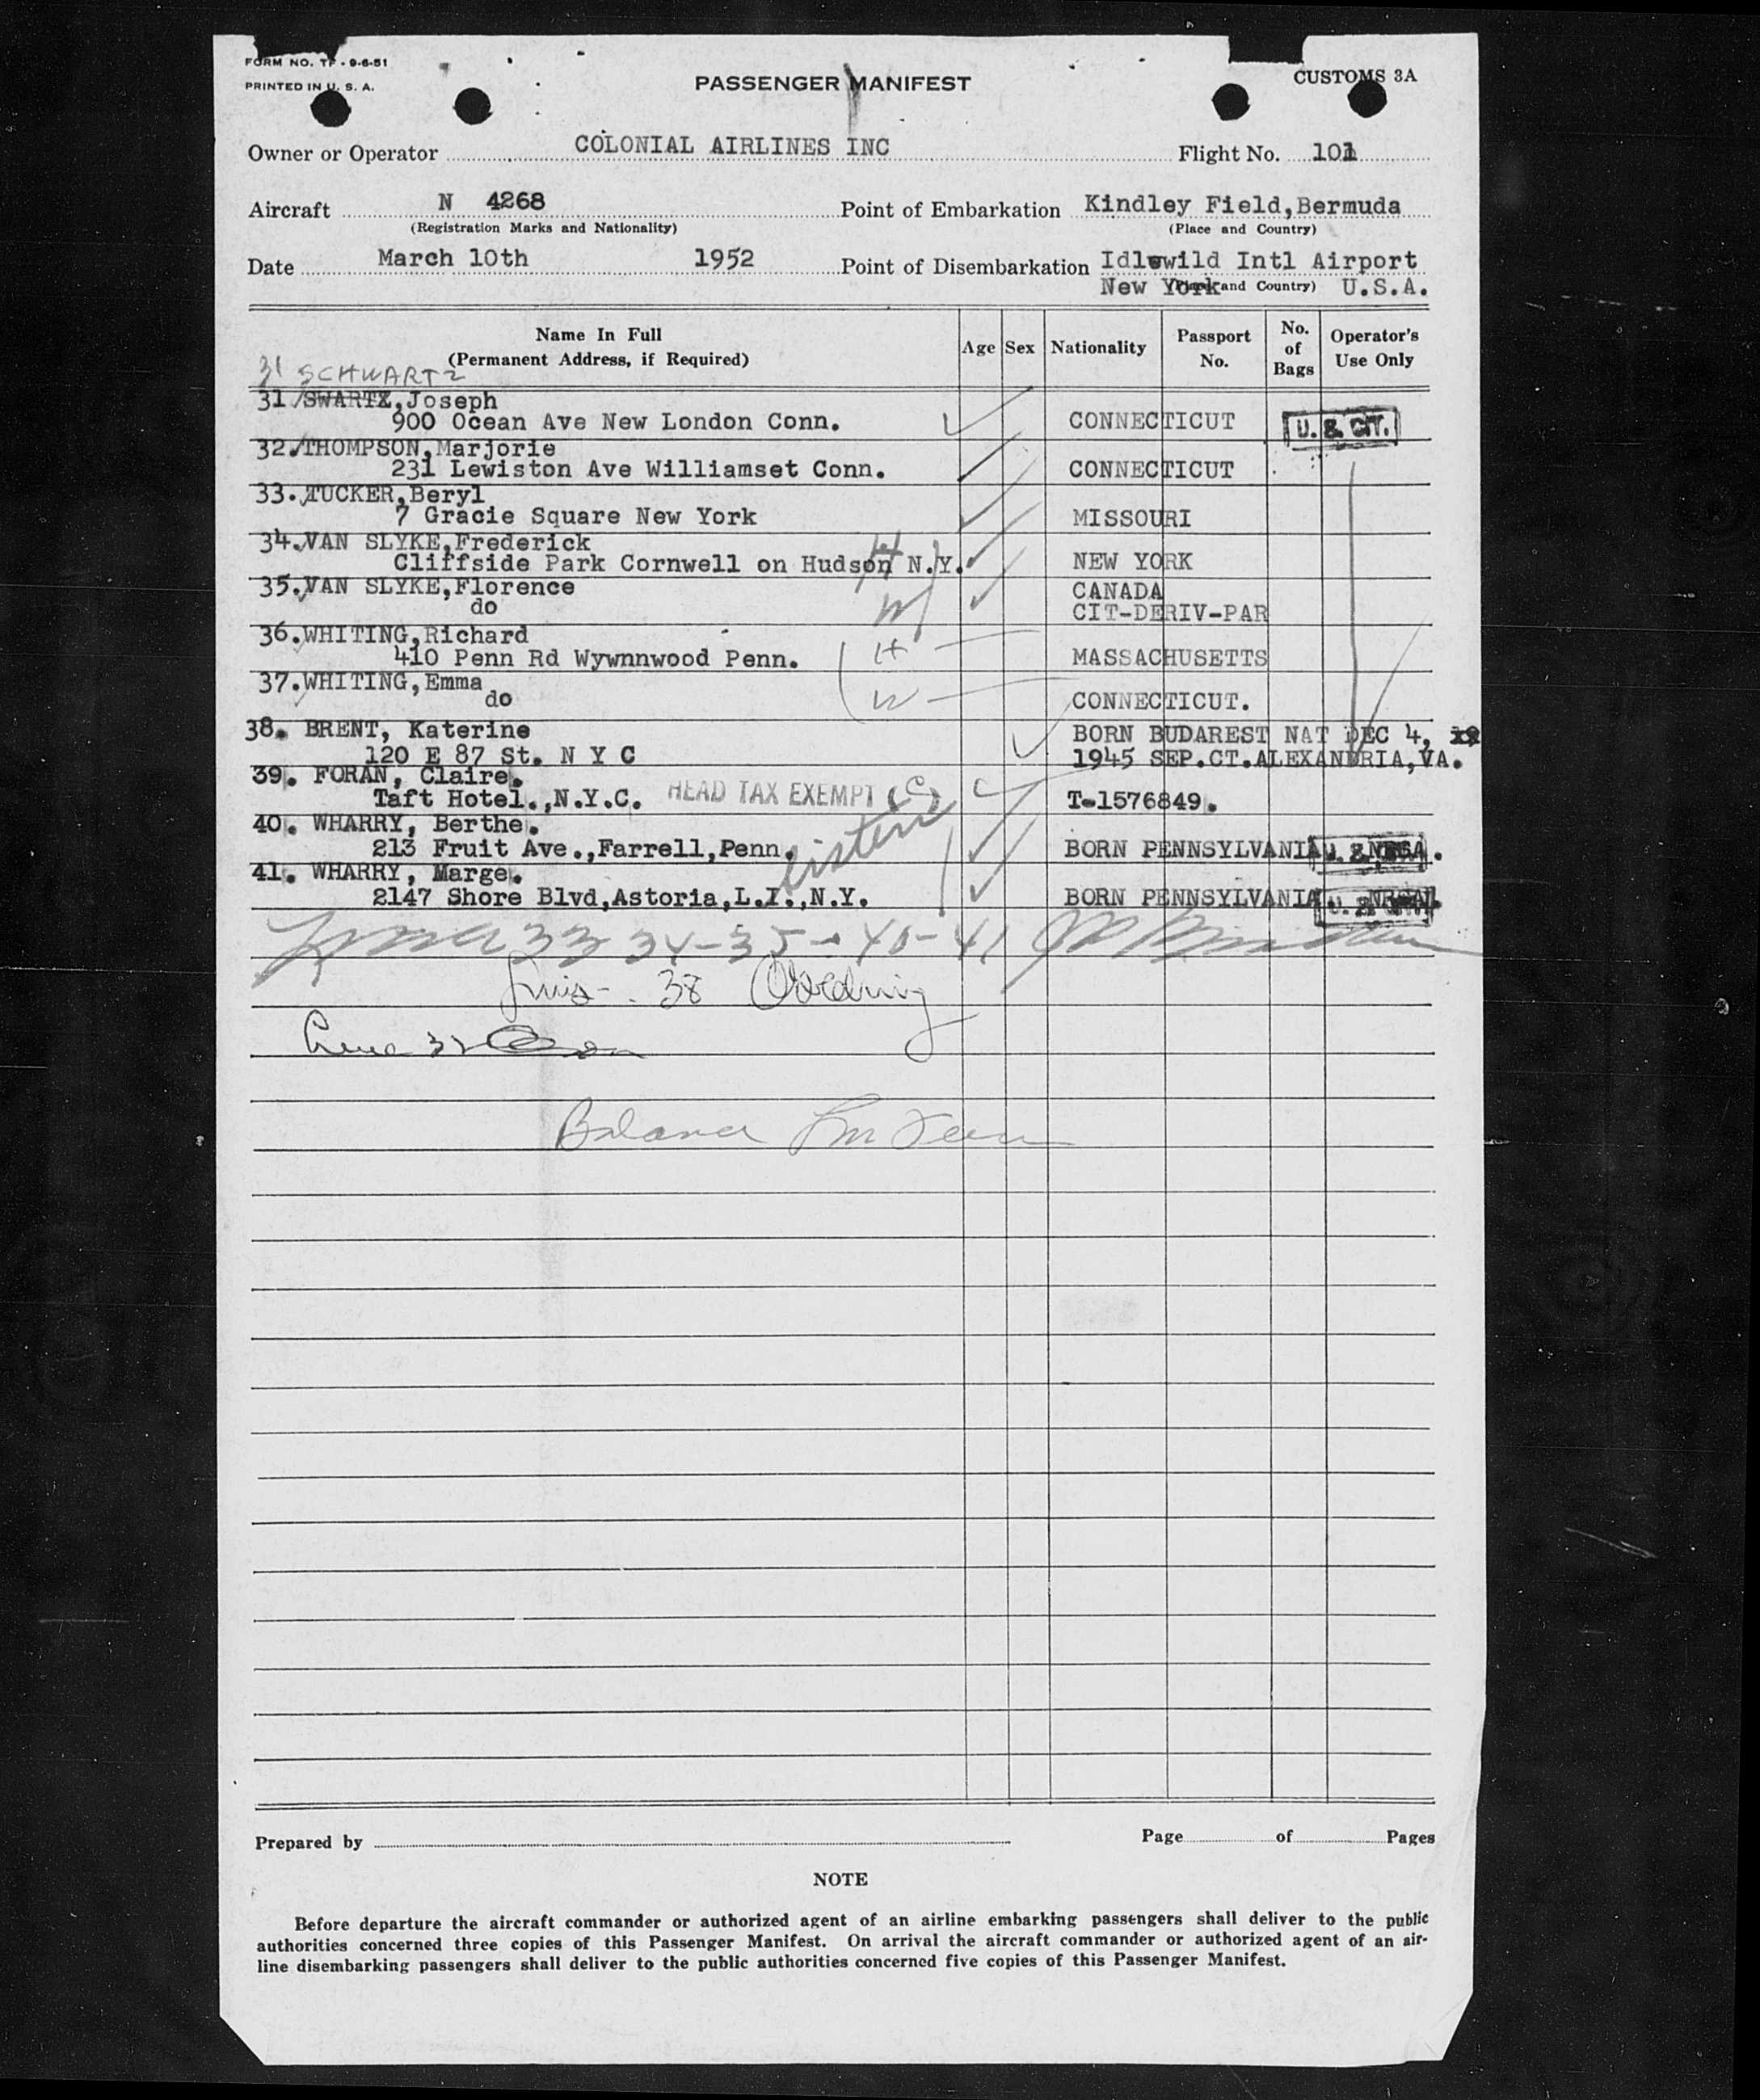 FORM NO. TF - 9-6-51
PRINTED IN U. S. A.
PASSENGER MANIFEST
CUSTOMS 3A
Owner or Operator COLONIAL AIRLINES INC Flight No. 101
Aircraft N 4268 Point of Embarkation Kindley Field,Bermuda
(Registration Marks and Nationality) (Place and Country)
Date March 10th 1952 Point of Disembarkation Idlewild Intl Airport
New York and Country) U.S.A.
Name In Full
(Permanent Address, if Required)
Age Sex Nationality Passport No. No. of Bags Operator's Use Only
31 SCHWARTZ
31 SWARTZ,Joseph
900 Ocean Ave New London Conn. CONNECTICUT U. S. CIT.
32.THOMPSON,Marjorie
231 Lewiston Ave Williamset Conn. CONNECTICUT
33.TUCKER,Beryl
7 Gracie Square New York MISSOURI
34.VAN SLYKE,Frederick
Cliffside Park Cornwell on Hudson N.Y. H NEW YORK
35.VAN SLYKE,Florence CANADA
do W CIT-DERIV-PAR
36.WHITING,Richard
410 Penn Rd Wywnnwood Penn. H MASSACHUSETTS
37.WHITING,Emma
do W CONNECTICUT.
38. BRENT, Katerine BORN BUDAREST NAT DEC 4,
120 E 87 St. N Y C 1945 SEP.CT.ALEXANDRIA,VA.
39. FORAN, Claire.
Taft Hotel.,N.Y.C. HEAD TAX EXEMPT (C) C T-1576849.
40. WHARRY, Berthe.
213 Fruit Ave.,Farrell,Penn. BORN PENNSYLVANIA
sisters
41. WHARRY, Marge.
2147 Shore Blvd,Astoria,L.I.,N.Y. BORN PENNSYLVANIA
33 34-35-40-41
38
Balance
Prepared by Page of Pages
NOTE
Before departure the aircraft commander or authorized agent of an airline embarking passengers shall deliver to the public
authorities concerned three copies of this Passenger Manifest. On arrival the aircraft commander or authorized agent of an air-
line disembarking passengers shall deliver to the public authorities concerned five copies of this Passenger Manifest.